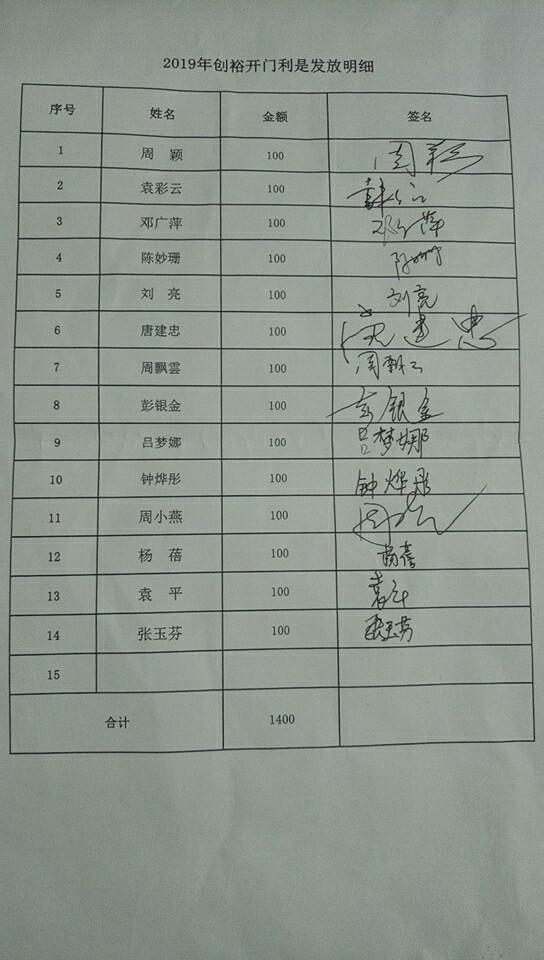 2019年创裕开门利是发放明细
序号 姓名 金额 签名
1 周 颖 100 周颖
2 袁彩云 100
3 邓广萍 100 邓广萍
4 陈妙珊 100 陈妙珊
5 刘 亮 100 刘亮
6 唐建忠 100 唐建忠
7 周飘雲 100 周飘云
8 彭银金 100 彭银金
9 吕梦娜 100 吕梦娜
10 钟烨彤 100 钟烨彤
11 周小燕 100
12 杨 蓓 100 杨蓓
13 袁 平 100 袁平
14 张玉芬 100 张玉芬
15
合计 1400